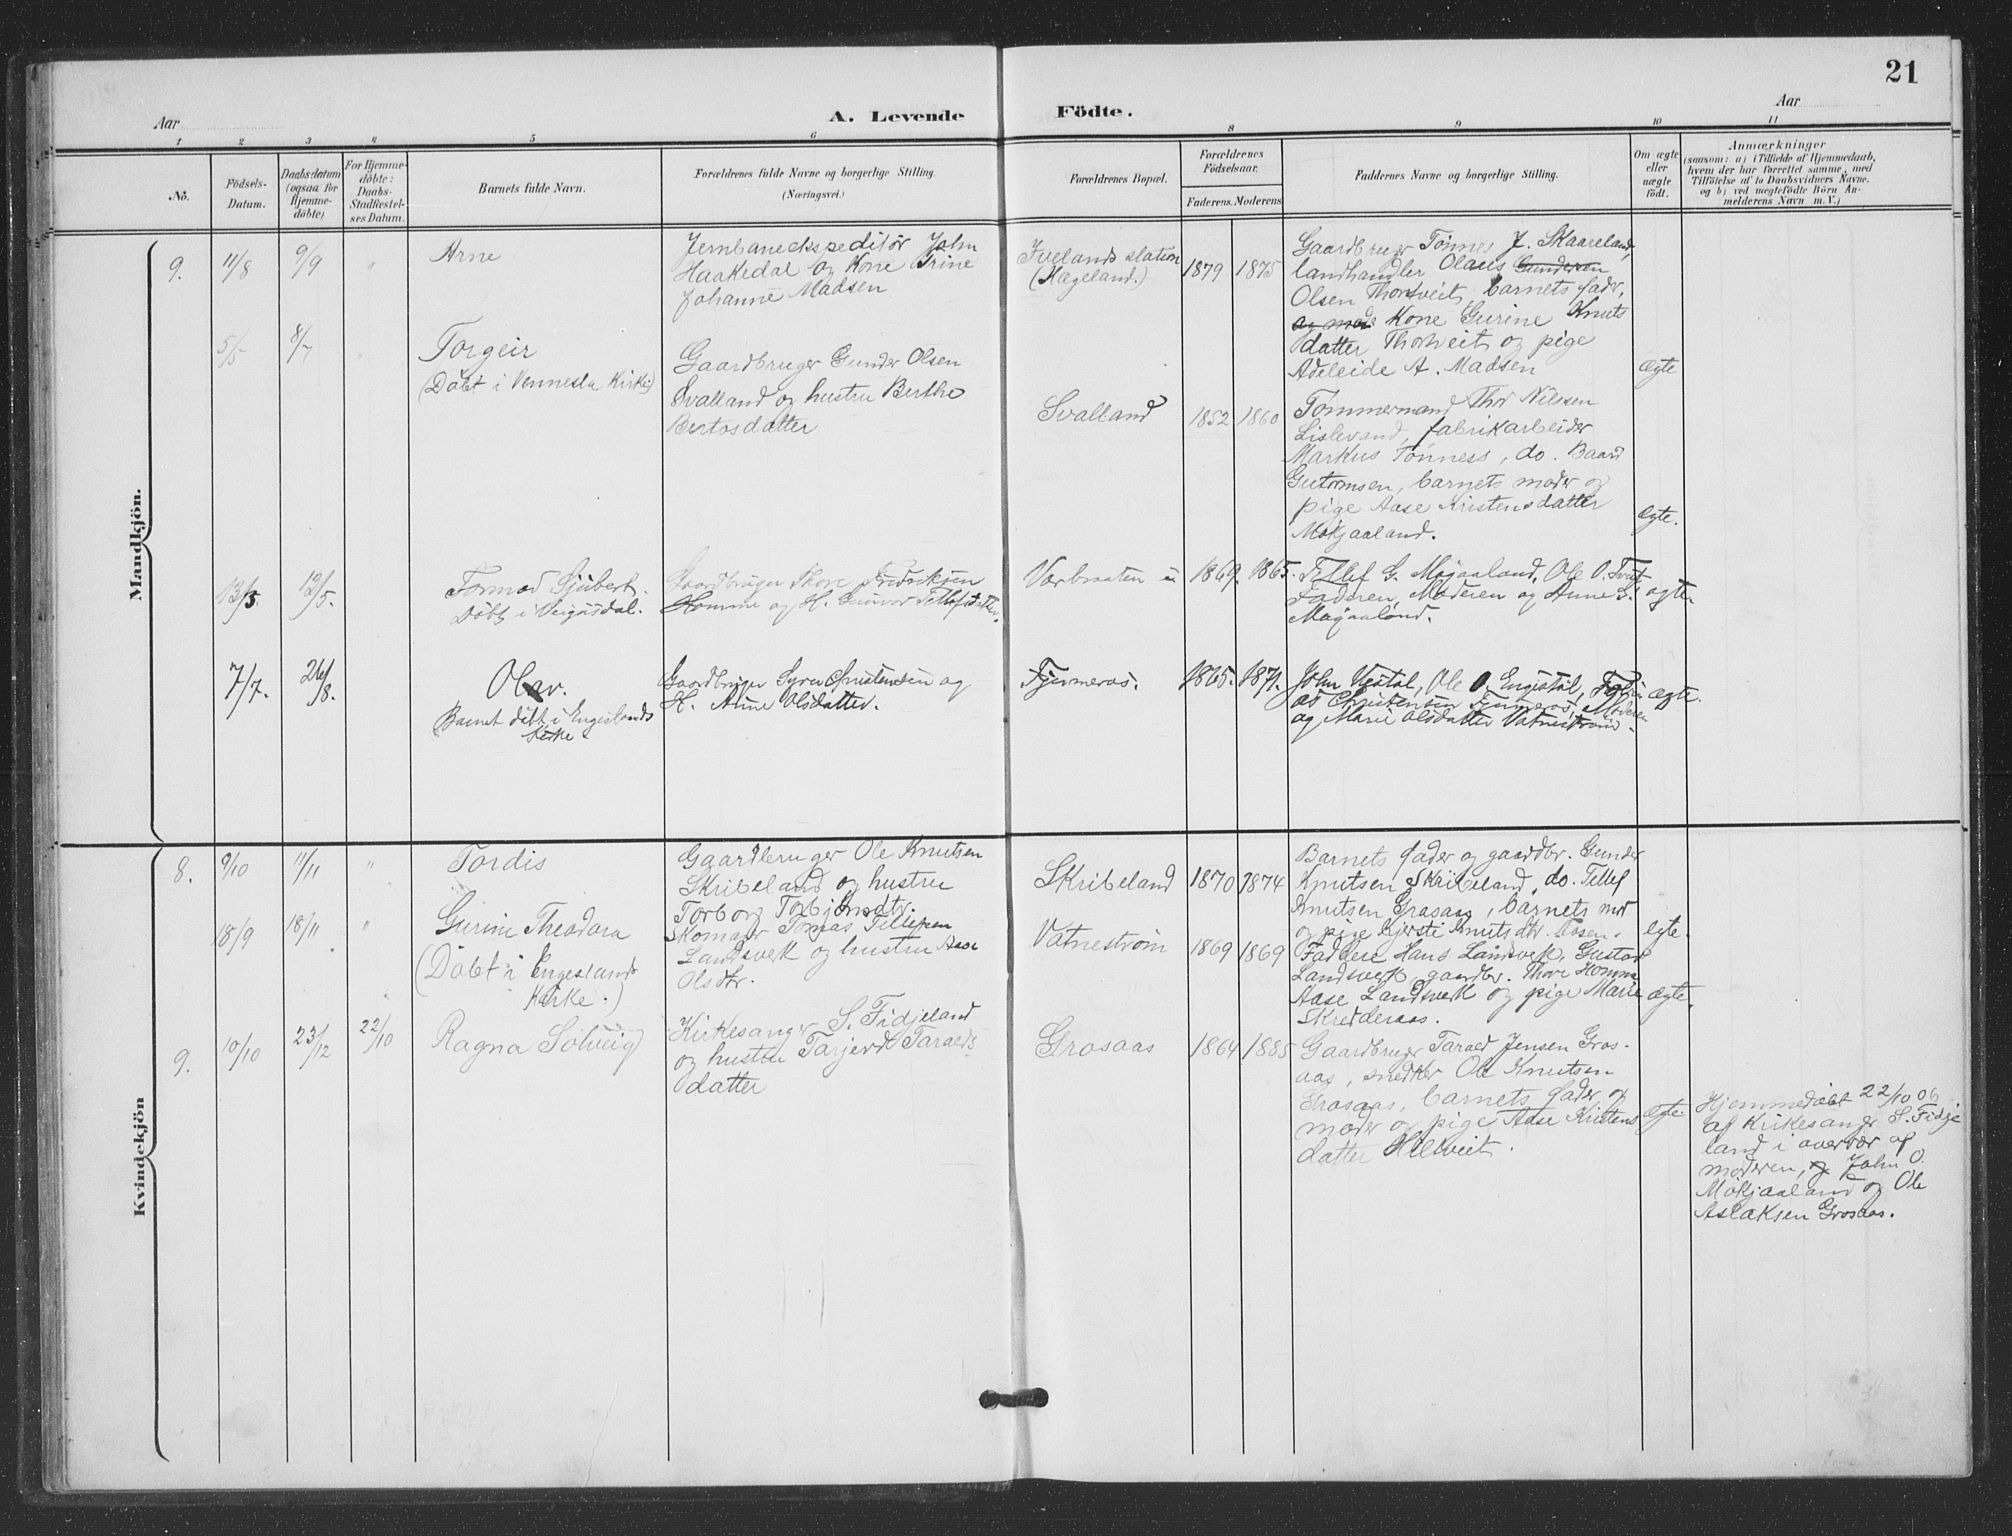 21
Aar
A. Levende Födte.
Aar
1 2 3 4 5 6 8 9 10 11
No.
Födsels-Datum.
Daabsdatum (ogsaa for Hjemme-döbte)
For Hjemme-döbte: Daabs-Stadfæstel-ses Datum.
Barnets fulde Navn.
Forældrenes fulde Navne og borgerlige Stilling.
(Næringsvei.)
Forældrenes Bopæl.
Forældrenes Födselsaar.
Faderens. Moderens
Faddernes Navne og borgerlige Stilling.
Om ægte eller uægte födt.
Anmærkninger
(saasom: a) i Tilfælde af Hjemmedaab,
hvem der har forrettet samme, med
Tilföielse af to Daabsvidners Navne.
og b) ved uegtefödte Börn An-
melderens Navn m. V.)
Mandkjön.
9. 11/8 9/9 " Arne
Jernbaneekspeditör John
Haakedal og Kone Trine
Johanne Madsen
Ivelands station
(Hægeland.)
1879 1875
Gaardbruger Tönnes J. Skaareland,
landhandler Olaus Gundersen
Olsen Thortveit, barnets fader,
og mod Kone Gurine Knuts
datter Thortveit og pige
Adeleide A. Madsen
ægte
5/5 8/7 " Torgeir
(Döbt i Vennesla Kirke)
Gaardbruger Gunder Olsen
Svalland og hustru Berthe
Bertosdatter
Svalland
1852 1860
Tömmermand Thor Nilssen
Lislevand, fabrikarbeider
Markus Tönness, do. Baard
Gutormsen, barnets moder og
pige Aase Kristensdatter
Mokjaaland.
ægte.
13/3. 13/5. Tormod Sjubert.
Döbt i Veigusdal.
Gaardbruger Thore Fredriksen
Homme og H. Gunvor Tellefsdatter.
Værbraaten
1869. 1865.
Tellef G. Mojaaland, Ole O.
Faderen, Moderen og Anne G.
Mojaaland.
ægte.
7/7. 26/8. Olav.
Barnet döbt i Engeslands
kirke
Gaardbruger Syvert Christensen og
H. Anne Olsdatter.
Fjermeros.
1865. 1871.
John Vestöl, Ole O. Engestöl, Tobi
as Christensen Fjermeros, Moderen
og Marie Olsdatter Vatneström.
ægte.
Kvindekjön
8. 9/10 11/11 " Tordis
Gaardbruger Ole Knutsen
Skribeland og hustru
Torborg Torbjörnsdtr.
Skribeland
1870 1874
Barnets fader og gaardbr. Gunder
Knutsen Skribeland, do. Tellef
Knutsen Grosaas, barnets mor
og pige Gjerste Knutsdtr. Aasen.
ægte.
18/9 18/11 " Gurine Theodora
(Döbt i Engeslands
Kirke.)
Skomager Tomas Tellefsen
Landsverk og hustru Aase
Olsdtr.
Vatneström
1869 1869
Faddere Hans Landsverk, Gustav
Landsverk, gaardbr. Thore Homme
Aase Landsverk og pige Marie
Skredderaas.
ægte.
9. 10/10 23/12 22/10 Ragna Solveig
Kirkesanger S. Fidjeland
og hustru Tarjerd Taralds
datter
Grosaas
1864 1885
Gaardbruger Tarald Jensen Gros-
aas, snedker Ole Knutsen
Grosaas, barnets fader og
moder og pige Aase Kristens
datter Helkveit.
ægte
Hjemmedöbt 22/10 06
af Kirkesanger S. Fidje
land i overvær af
moderen, og John O.
Mokjaaland og Ole
Aslaksen Grosaas.